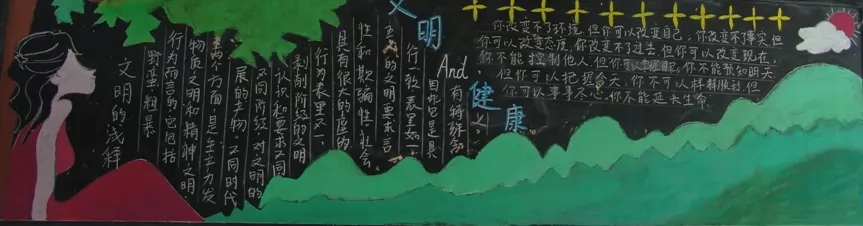 文明
And
健康
你改变不了环境,但你可以改变自己,你改变不了事实,但
你可以改变态度,你改变不了过去,但你可以改变现在,
你不能控制他人,但你可以掌握自己,你不能预知明天
但你可以把握今天,你不可以样样胜利,但
你可以事事尽心,你不能延长生命
文明的浅解
野蛮粗暴
行为而言的它包括
物质文明和精神文明
两个方面是生产力发
展的产物不同时代
不同阶级对文明的
认识和要求不同
剥削阶级的文明
行为表里不一
具有很大的虚伪
性和欺骗性,社会
主义的文明要求言
行一致表里如一。
因此它是具
有特殊的